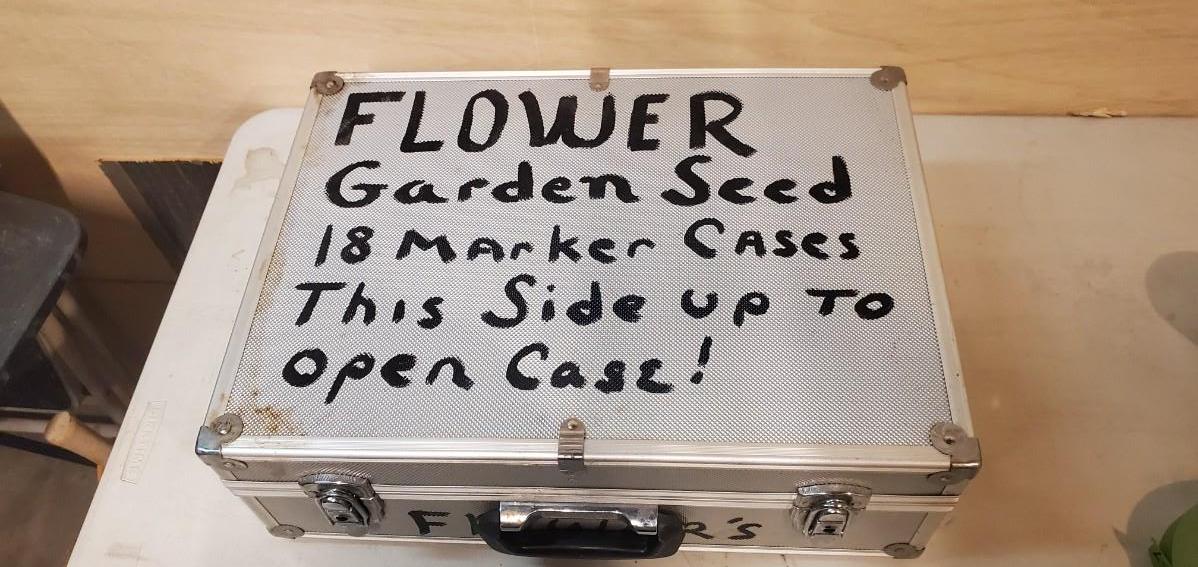 FLOWER
Garden Seed
18 Marker Cases
This Side up To
open Case!